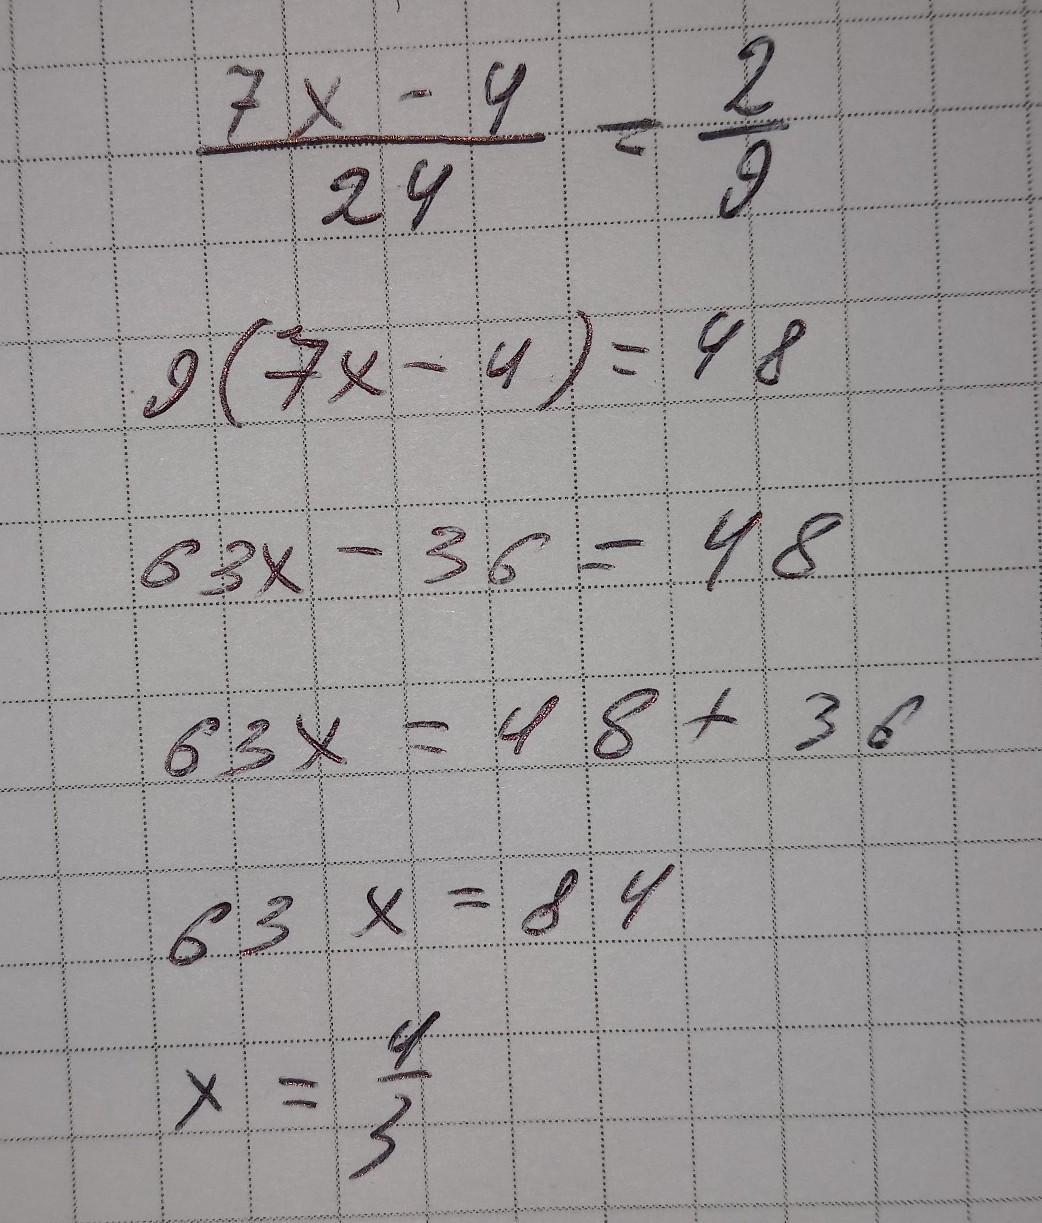 7x - 4
24
= 2/9
9(7x - 4) = 48
63x - 36 = 48
63x = 48 + 36
63x = 84
x = 4/3